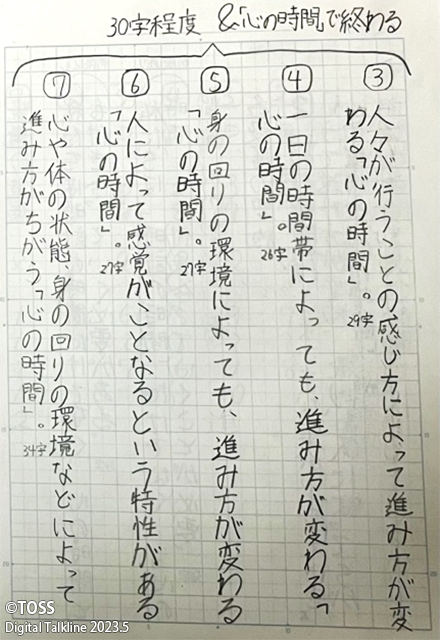 30字程度 &「心の時間」で終わる
③
人々が行うことの感じ方によって進み方が変
わる「心の時間」。29字
④
一日の時間帯によっても、進み方が変わる「
心の時間」。26字
⑤
身の回りの環境によっても、進み方が変わる
「心の時間」。27字
⑥
人によって感覚がことなるという特性がある
「心の時間」。27字
⑦
心や体の状態、身の回りの環境などによって
進み方がちがう「心の時間」。34字
©TOSS
Digital Talkline 2023.5